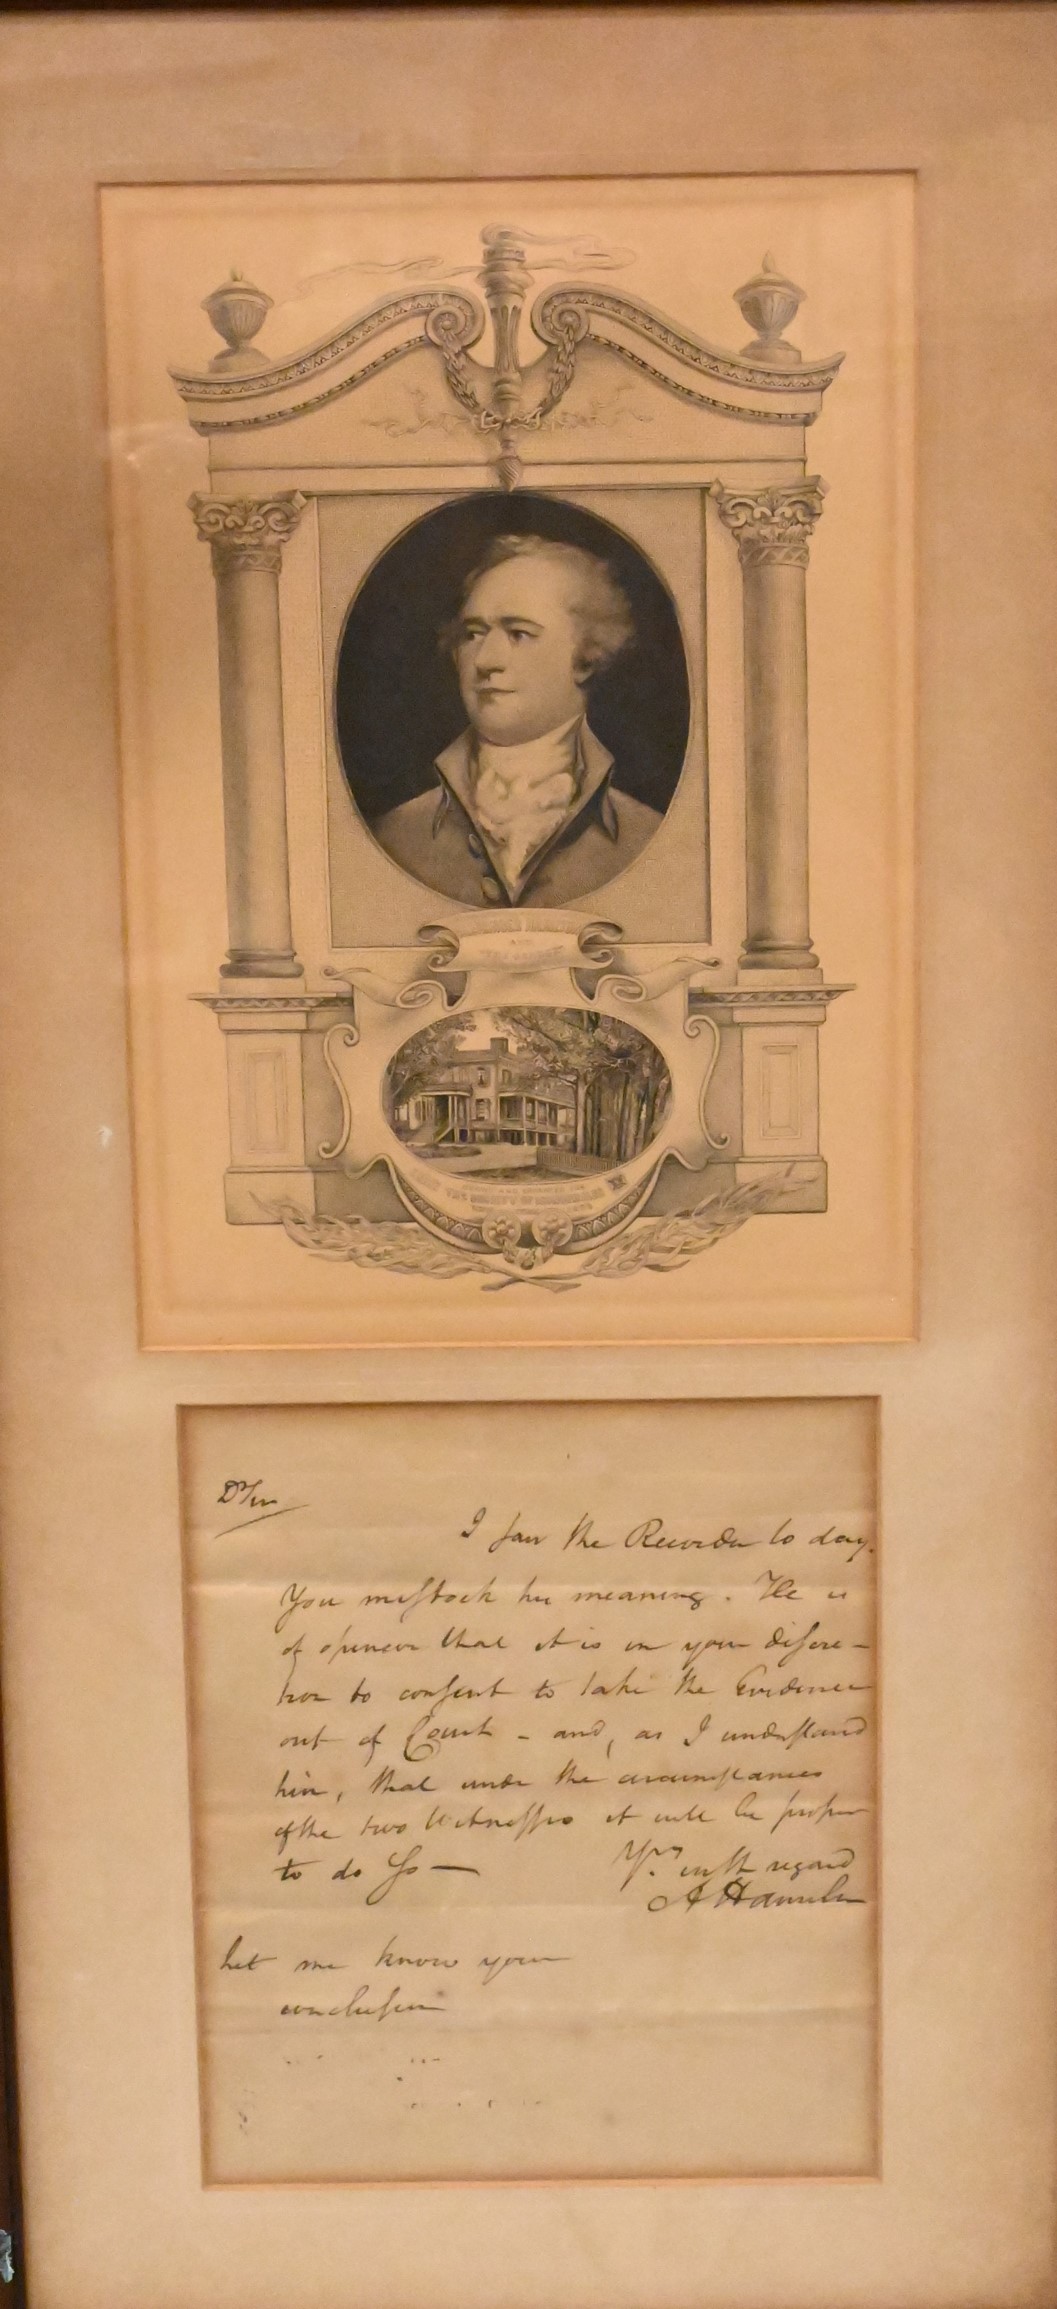 AND
THE SOCIETY OF ICONOPHILES
Dr Sir
I saw the Recorder to day.
You mistook his meaning. He is
of opinion that it is in your discre-
tion to consent to take the Evidence
out of Court - and, as I understand
him, that under the circumstances
of the two Witnesses it will be proper
to do so —
Yrs. with regard
A Hamilton
Let me know your
conclusion